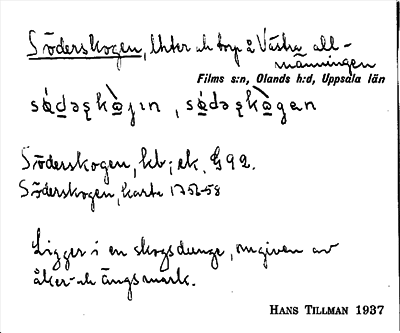 Söderskogen, Uhter och torp å Västra all-
männingen
Films s:n, Olands h:d, Uppsala län
Söderskogen, kb; ek. G 92.
Söderskogen, karta 1756-58
Ligger i en skogsdunge, omgiven av
åker- och ängsmark.
HANS TILLMAN 1937